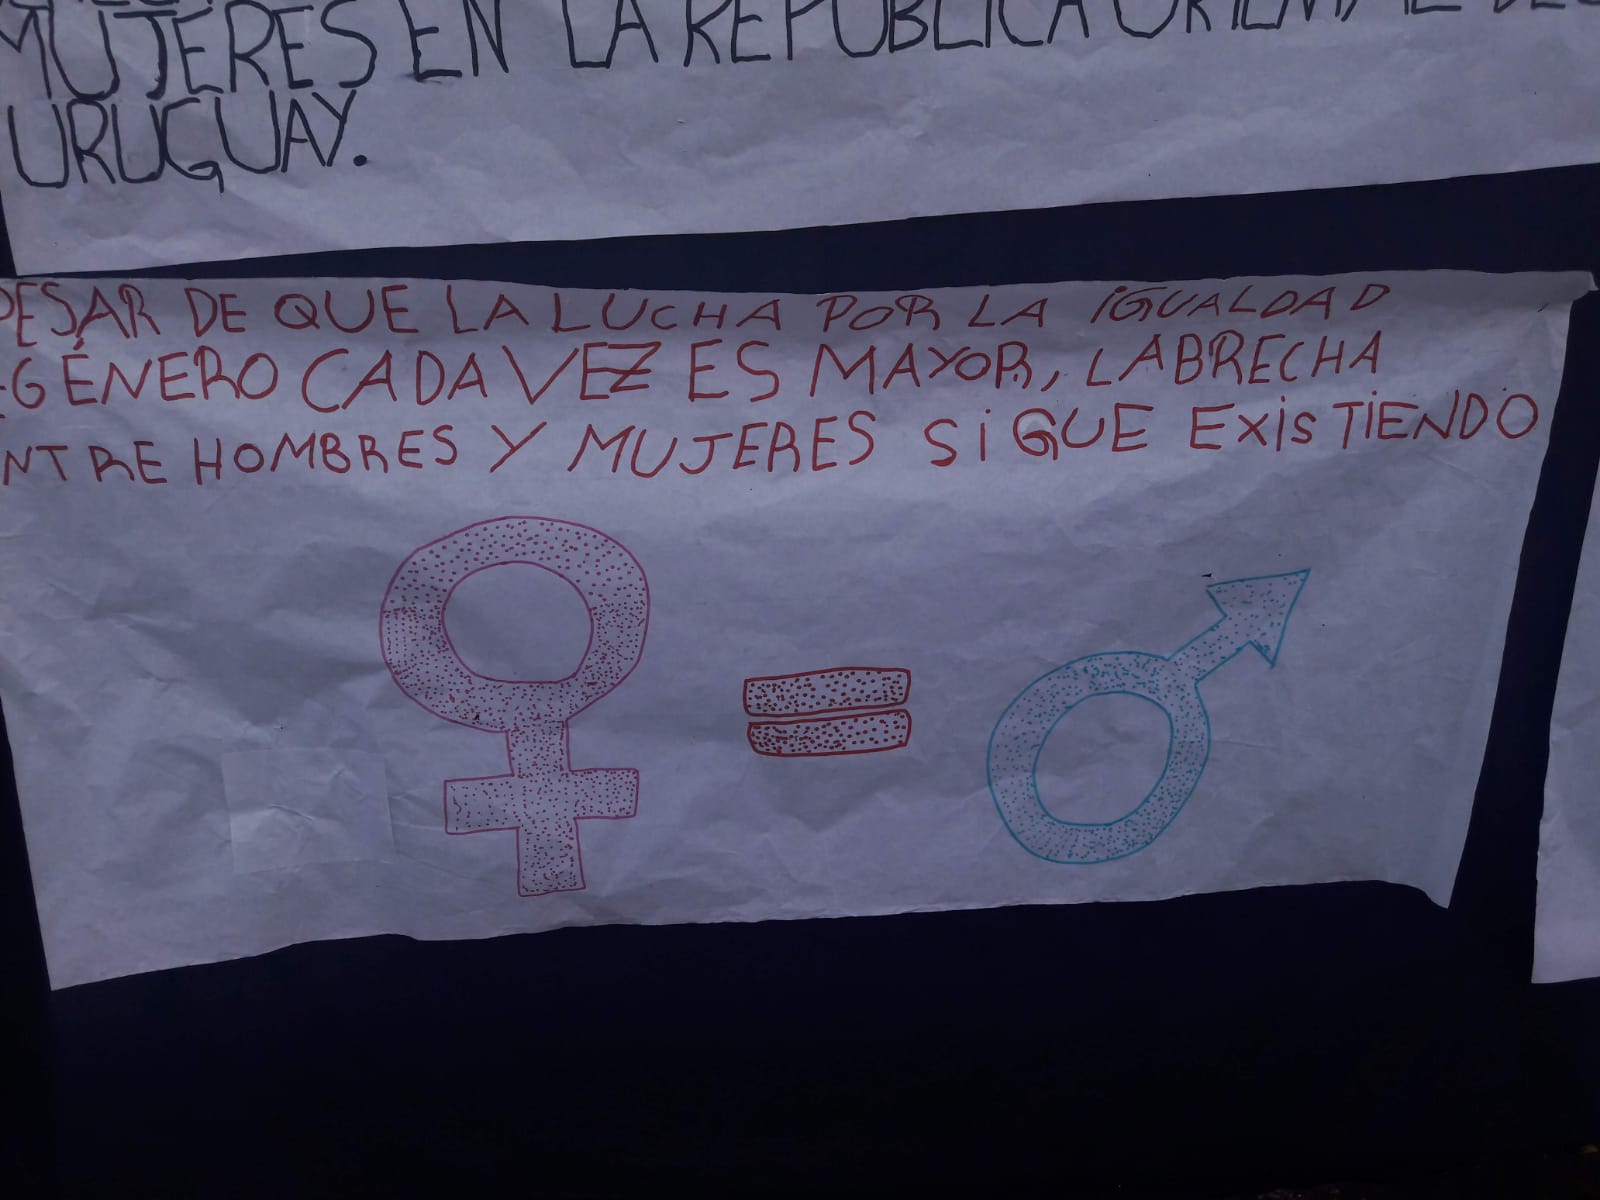 MUJERES EN LA REPÚBLICA ORIENTAL DEL
URUGUAY.
PESAR DE QUE LA LUCHA POR LA IGUALDAD
E GÉNERO CADA VEZ ES MAYOR, LA BRECHA
NTRE HOMBRES Y MUJERES SIGUE EXISTIENDO